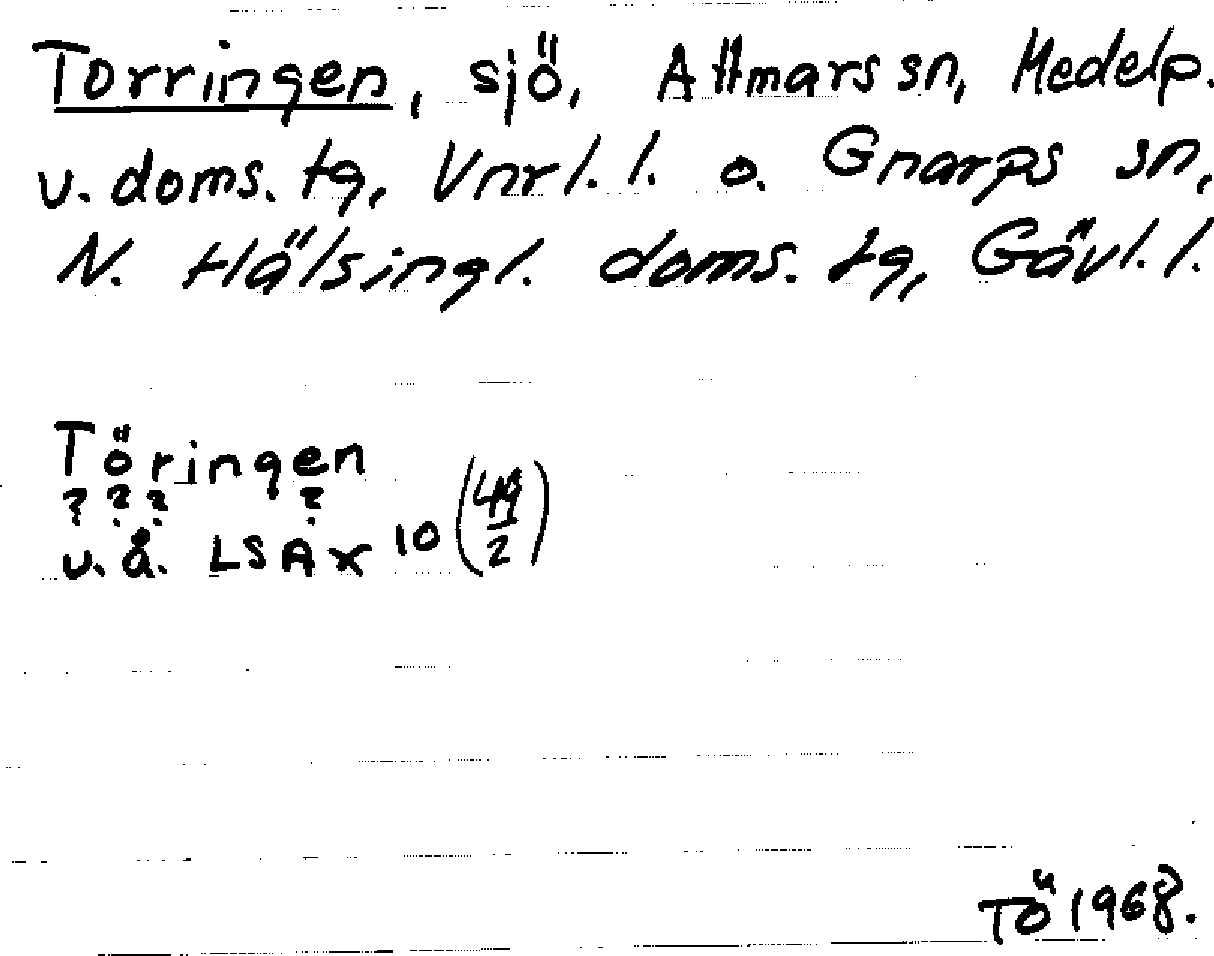 Torringen, sjö, Attmars sn, Medelp.
v. doms. tg, Vnrl. l. o. Gnarps sn,
N. Hälsingl. doms. tg, Gävl. l.
Töringen
? ? ? ?
u. å. LSA X 10 (49/2)
TÖ 1968.